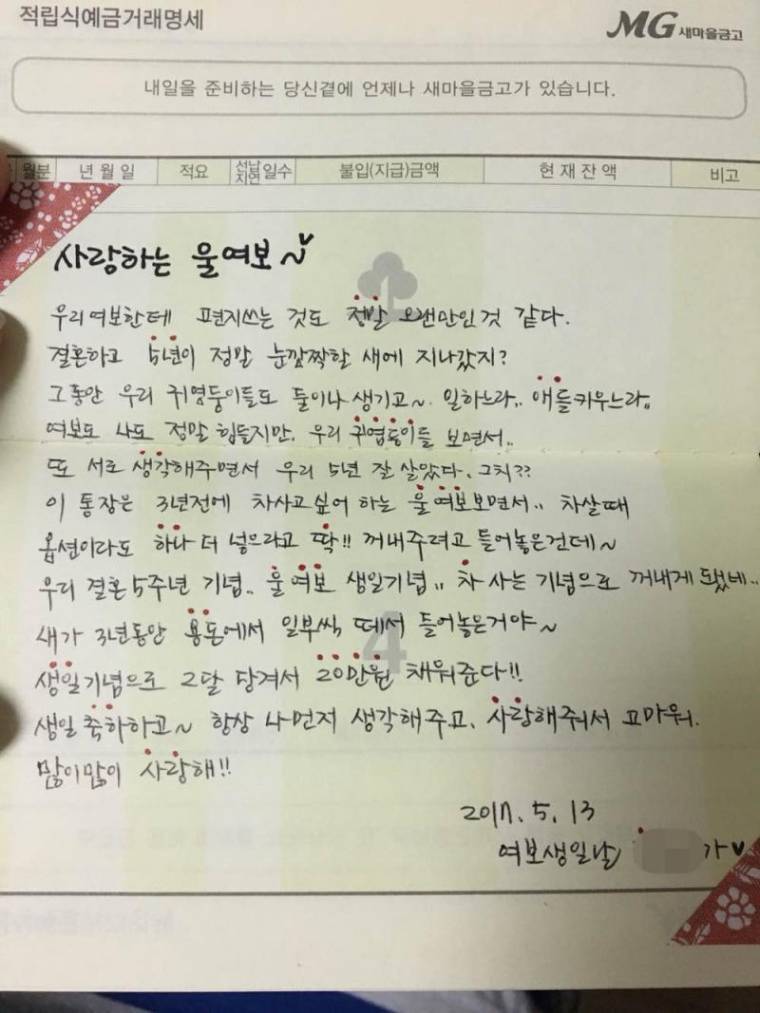 적립식예금거래명세
MG 새마을금고
내일을 준비하는 당신곁에 언제나 새마을금고가 있습니다.
월분 년월일 적요 선납 지연 일수 불입(지급)금액 현재잔액 비고
사랑하는 울여보~♥
우리여보한테 편지쓰는 것도 정말 오랜만인것 같다.
결혼하고 5년이 정말 눈깜짝할 새에 지나갔지?
그동안 우리 귀염둥이들도 둘이나 생기고~. 일하느라.. 애들키우느라..
여보도 나도 정말 힘들지만, 우리 귀염둥이들 보면서..
또 서로 생각해주면서 우리 5년 잘 살았다. 그치??
이 통장은 3년전에 차사고싶어 하는 울여보보면서.. 차살때
옵션이라도 하나 더 넣으라고 딱!! 꺼내주려고 들어놓은건데~
우리 결혼5주년 기념.. 울여보 생일기념.. 차 사는 기념으로 꺼내게 됐네..
내가 3년동안 용돈에서 일부씩 떼서 들어놓은거야~
4
생일기념으로 2달 당겨서 20만원 채워준다!!
생일 축하하고~ 항상 나먼저 생각해주고, 사랑해줘서 고마워.
많이많이 사랑해!!
2017. 5. 13
여보생일날 가♥